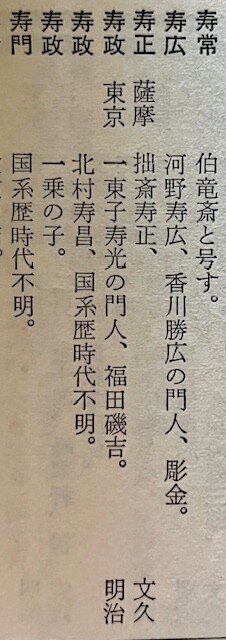 寿常 伯竜斎と号す。
寿広 河野寿広、香川勝広の門人、彫金。
寿正 薩摩 拙斎寿正、 文久
寿政 東京 一東子寿光の門人、福田磯吉。 明治
寿政 北村寿昌、国系歴時代不明。
寿政 一乗の子。
寿門 国系歴時代不明。